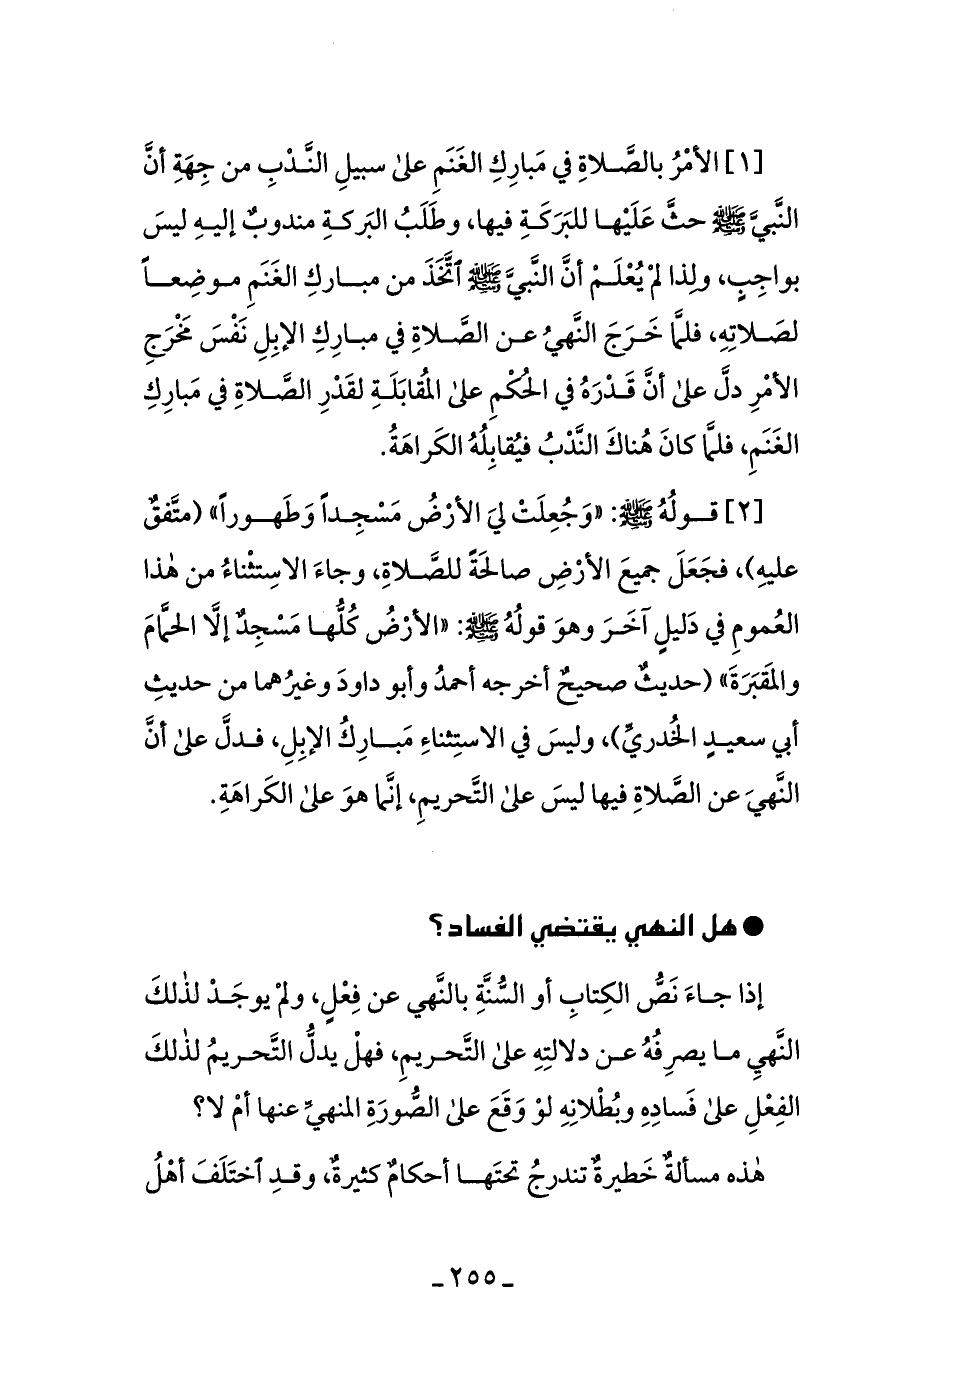 [١] الأمْرُ بالصَّلاةِ في مَبارِكِ الغَنَمِ علىٰ سبيلِ النَّدْبِ من جِهَةِ أنَّ
النَّبيَّ ﷺ حثَّ عَلَيْها للبَرَكَةِ فيها، وطَلَبُ البَركةِ مندوبٌ إليهِ ليسَ
بواجِبٍ، ولِذا لمْ يُعْلَمْ أنَّ النَّبيَّ ﷺ ٱتَّخَذَ من مباركِ الغَنَمِ موضِعاً
لصَلاتِهِ، فلمَّا خَرَجَ النَّهيُ عن الصَّلاةِ في مبارِكِ الإبِلِ نَفْسَ مَخْرَجِ
الأمْرِ دلَّ علىٰ أنَّ قَدْرَهُ في الحُكْمِ علىٰ المُقابَلَةِ لقَدْرِ الصَّلاةِ في مَبارِكِ
الغَنَمِ، فلمَّا كانَ هُناكَ النَّدْبُ فيُقابِلُهُ الكَراهَةُ.
[٢] قولُهُ ﷺ: «وَجُعِلَتْ ليَ الأرْضُ مَسْجِداً وَطَهوراً» (متَّفقٌ
عليهِ)، فجَعَلَ جميعَ الأرْضِ صالحَةً للصَّلاةِ، وجاءَ الاستِثْناءُ من هٰذا
العُمومِ في دَليلٍ آخَرَ وهوَ قولُهُ ﷺ: «الأرْضُ كُلُّها مَسْجِدٌ إلَّا الحمَّامَ
والمَقبَرَةَ» (حديثٌ صحيحٌ أخرجه أحمدُ وأبو داودَ وغيرُهما من حديثِ
أبي سعيدٍ الخُدريِّ)، وليسَ في الاستِثناءِ مَبارِكُ الإبِلِ، فدلَّ علىٰ أنَّ
النَّهيَ عن الصَّلاةِ فيها ليسَ علىٰ التَّحريمِ، إنَّما هوَ علىٰ الكَراهَةِ.
● هل النهي يقتضي الفساد؟
إذا جاءَ نَصُّ الكِتابِ أو السُّنَّةِ بالنَّهي عن فِعْلٍ، ولمْ يوجَدْ لذٰلكَ
النَّهيِ ما يصرِفُهُ عن دلالتِهِ علىٰ التَّحريمِ، فهلْ يدلُّ التَّحريمُ لذٰلكَ
الفِعْلِ علىٰ فَسادِهِ وبُطْلانِهِ لوْ وَقَعَ علىٰ الصُّورَةِ المنهيِّ عنها أمْ لا؟
هٰذه مسألةٌ خَطيرةٌ تندرجُ تحتَها أحكامٌ كثيرةٌ، وقدِ ٱختَلَفَ أهْلُ
ـ ٢٥٥ ـ